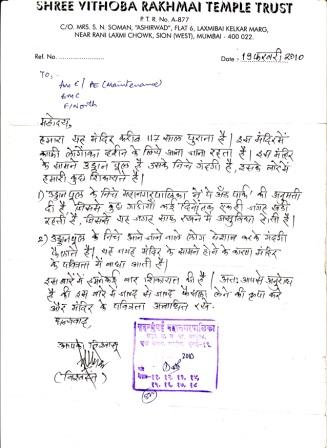 SHREE VITHOBA RAKHMAI TEMPLE TRUST
P. T. R. No. A-877
C/O. MRS. S. N. SOMAN, "ASHIRWAD", FLAT 6, LAXMIBAI KELKAR MARG,
NEAR RANI LAXMI CHOWK, SION (WEST), MUMBAI - 400 022.
Ref. No. Date : 19 फरवरी 2010
To :-
AMC / EE (Maintenance)
BMC
F/North
महोदय,
हमारा यह मंदिर करीब 112 साल पुराना है। इस मंदिर में
काफी लोगोंका दर्शन के लिये आना जाना रहता है। इस मंदिर
के सामने उड्डान पूल है उसके निचे गंदगी है, इसके बारेमें
हमारी कुछ शिकायते है।
1) उड्डानपूल के निचे महानगरपालिका ने पे अँड पार्क की अनुमती
दी है, जिससे कुछ गाडीयाँ कई दिनोंतक एकही जगह खडी
रहती है, जिससे यह जगह साफ रखने में असुविधा होती है।
2) उड्डानपूल के निचे आने जाने वाले लोग पेशाब करके गंदगी
फैलाते है। यह जगह मंदिर के सामने होने के कारण मंदिर
के पवित्रता में बाधा आती है।
इस बारे में हमने कई बार शिकायत की है। अतः आपसे अनुरोध
है की इस बारे में जल्द से जल्द फैसला लेने की कृपा करे
और मंदिर की पवित्रता अबाधित रखे।
धन्यवाद,
आपका विश्वासू
(विश्वस्त)
2010